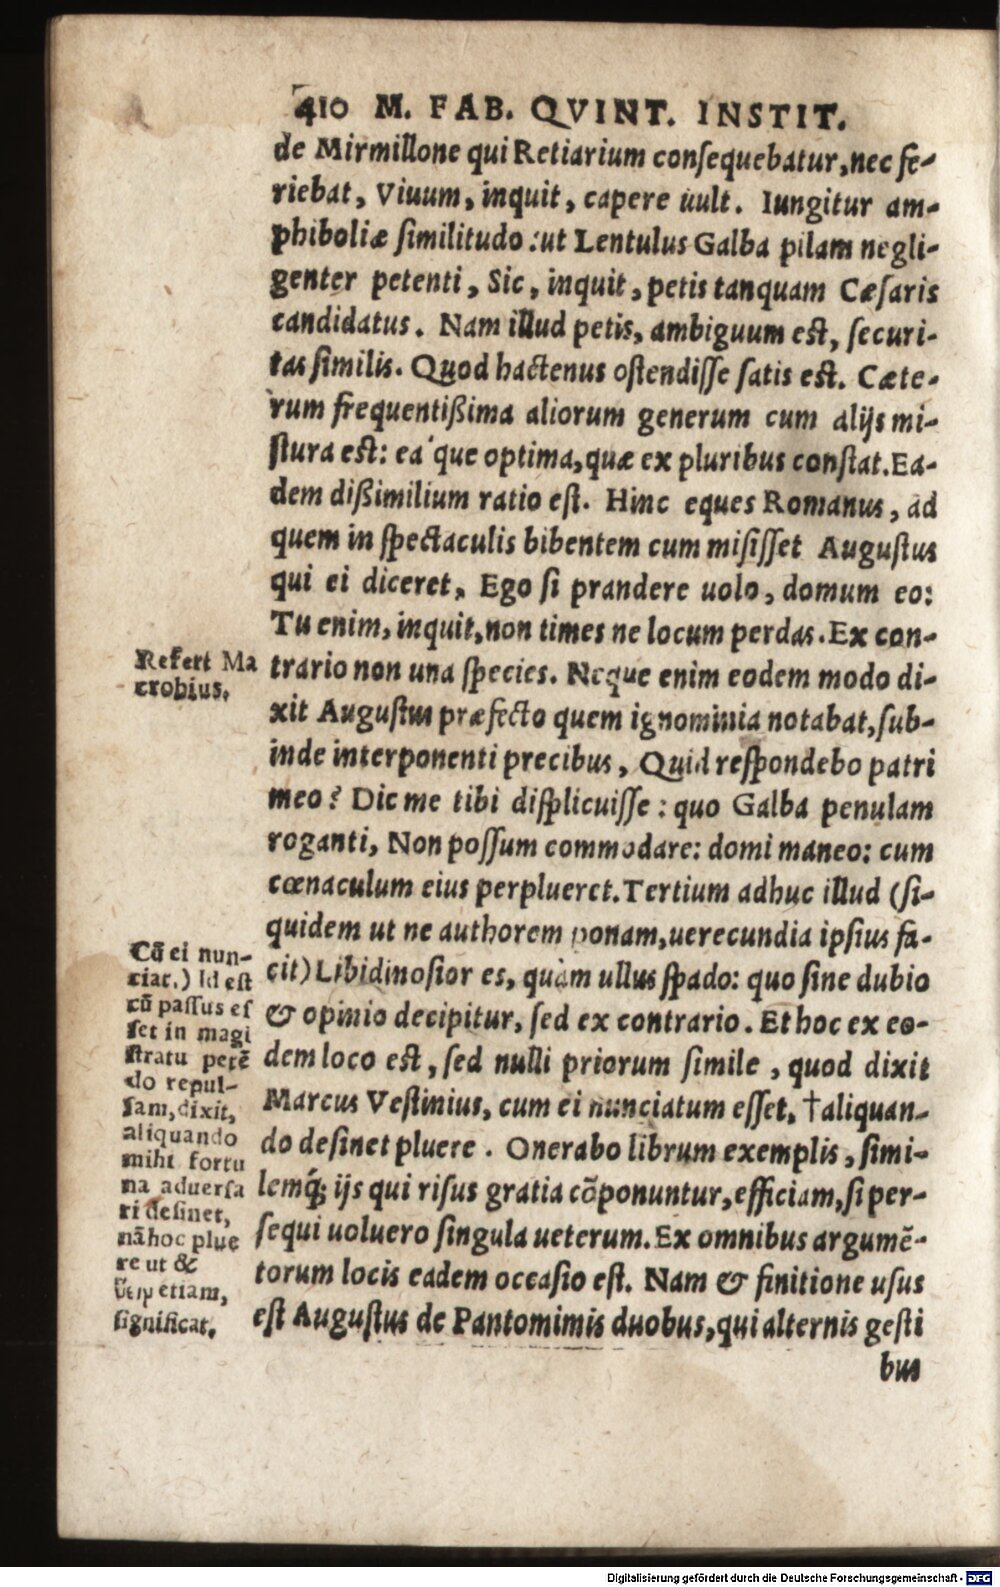 410 M. FAB. QVINT. INSTIT.
de Mirmillone qui Retiarium conſequebatur, nec fe-
riebat, Viuum, inquit, capere uult. Iungitur am-
phiboliæ ſimilitudo: ut Lentulus Galba pilam negli-
genter petenti, Sic, inquit, petis tanquam Cæſaris
candidatus. Nam illud petis, ambiguum eſt, ſecuri-
tas ſimilis. Quod hactenus oſtendiſſe ſatis eſt. Cæte-
rum frequentißima aliorum generum cum alijs mi-
ſtura eſt: ea que optima, quæ ex pluribus conſtat. Ea-
dem dißimilium ratio eſt. Hinc eques Romanus, ad
quem in ſpectaculis bibentem cum miſiſſet Auguſtus
qui ei diceret, Ego ſi prandere uolo, domum eo:
Tu enim, inquit, non times ne locum perdas. Ex con-
trario non una ſpecies. Neque enim eodem modo di-
xit Auguſtus præfecto quem ignominia notabat, ſub-
inde interponenti precibus, Quid reſpondebo patri
meo? Dic me tibi diſplicuiſſe: quo Galba penulam
roganti, Non poſſum commodare: domi maneo: cum
cœnaculum eius perplueret. Tertium adhuc illud (ſi-
quidem ut ne authorem ponam, uerecundia ipſius fa-
cit) Libidinoſior es, quàm ullus ſpado: quo ſine dubio
& opinio decipitur, ſed ex contrario. Et hoc ex eo-
dem loco eſt, ſed nulli priorum ſimile, quod dixit
Marcus Veſtinius, cum ei nunciatum eſſet, †aliquan-
do deſinet pluere. Onerabo librum exemplis, ſimi-
lemq́; ijs qui riſus gratia cõponuntur, efficiam, ſi per-
ſequi uoluero ſingula ueterum. Ex omnibus argumẽ-
torum locis eadem occaſio eſt. Nam & finitione uſus
eſt Auguſtus de Pantomimis duobus, qui alternis geſti
bus
Refert Ma
crobius.
Cũ ei nun-
ciat.) Id eſt
cũ paſſus eſ
ſet in magi
ſtratu petẽ
do repul-
ſam, dixit,
aliquando
mihi fortu
na aduerſa
ri deſinet,
nã hoc plue
re ut &
etiam,
ſignificat.
Digitalisierung gefördert durch die Deutsche Forschungsgemeinschaft - DFG